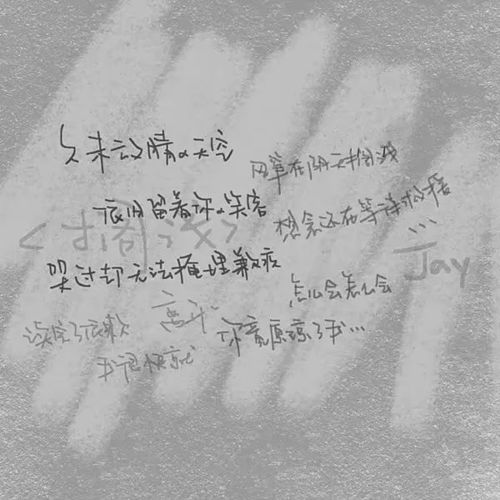 久未放晴的天空
风筝在阴天搁浅
依旧留着你的笑容
想念还在等待救援
...
<搁浅>
Jay
哭过却无法掩埋歉疚
怎么会怎么会
你竟原谅了我...
读完了依赖
我很快就
离开